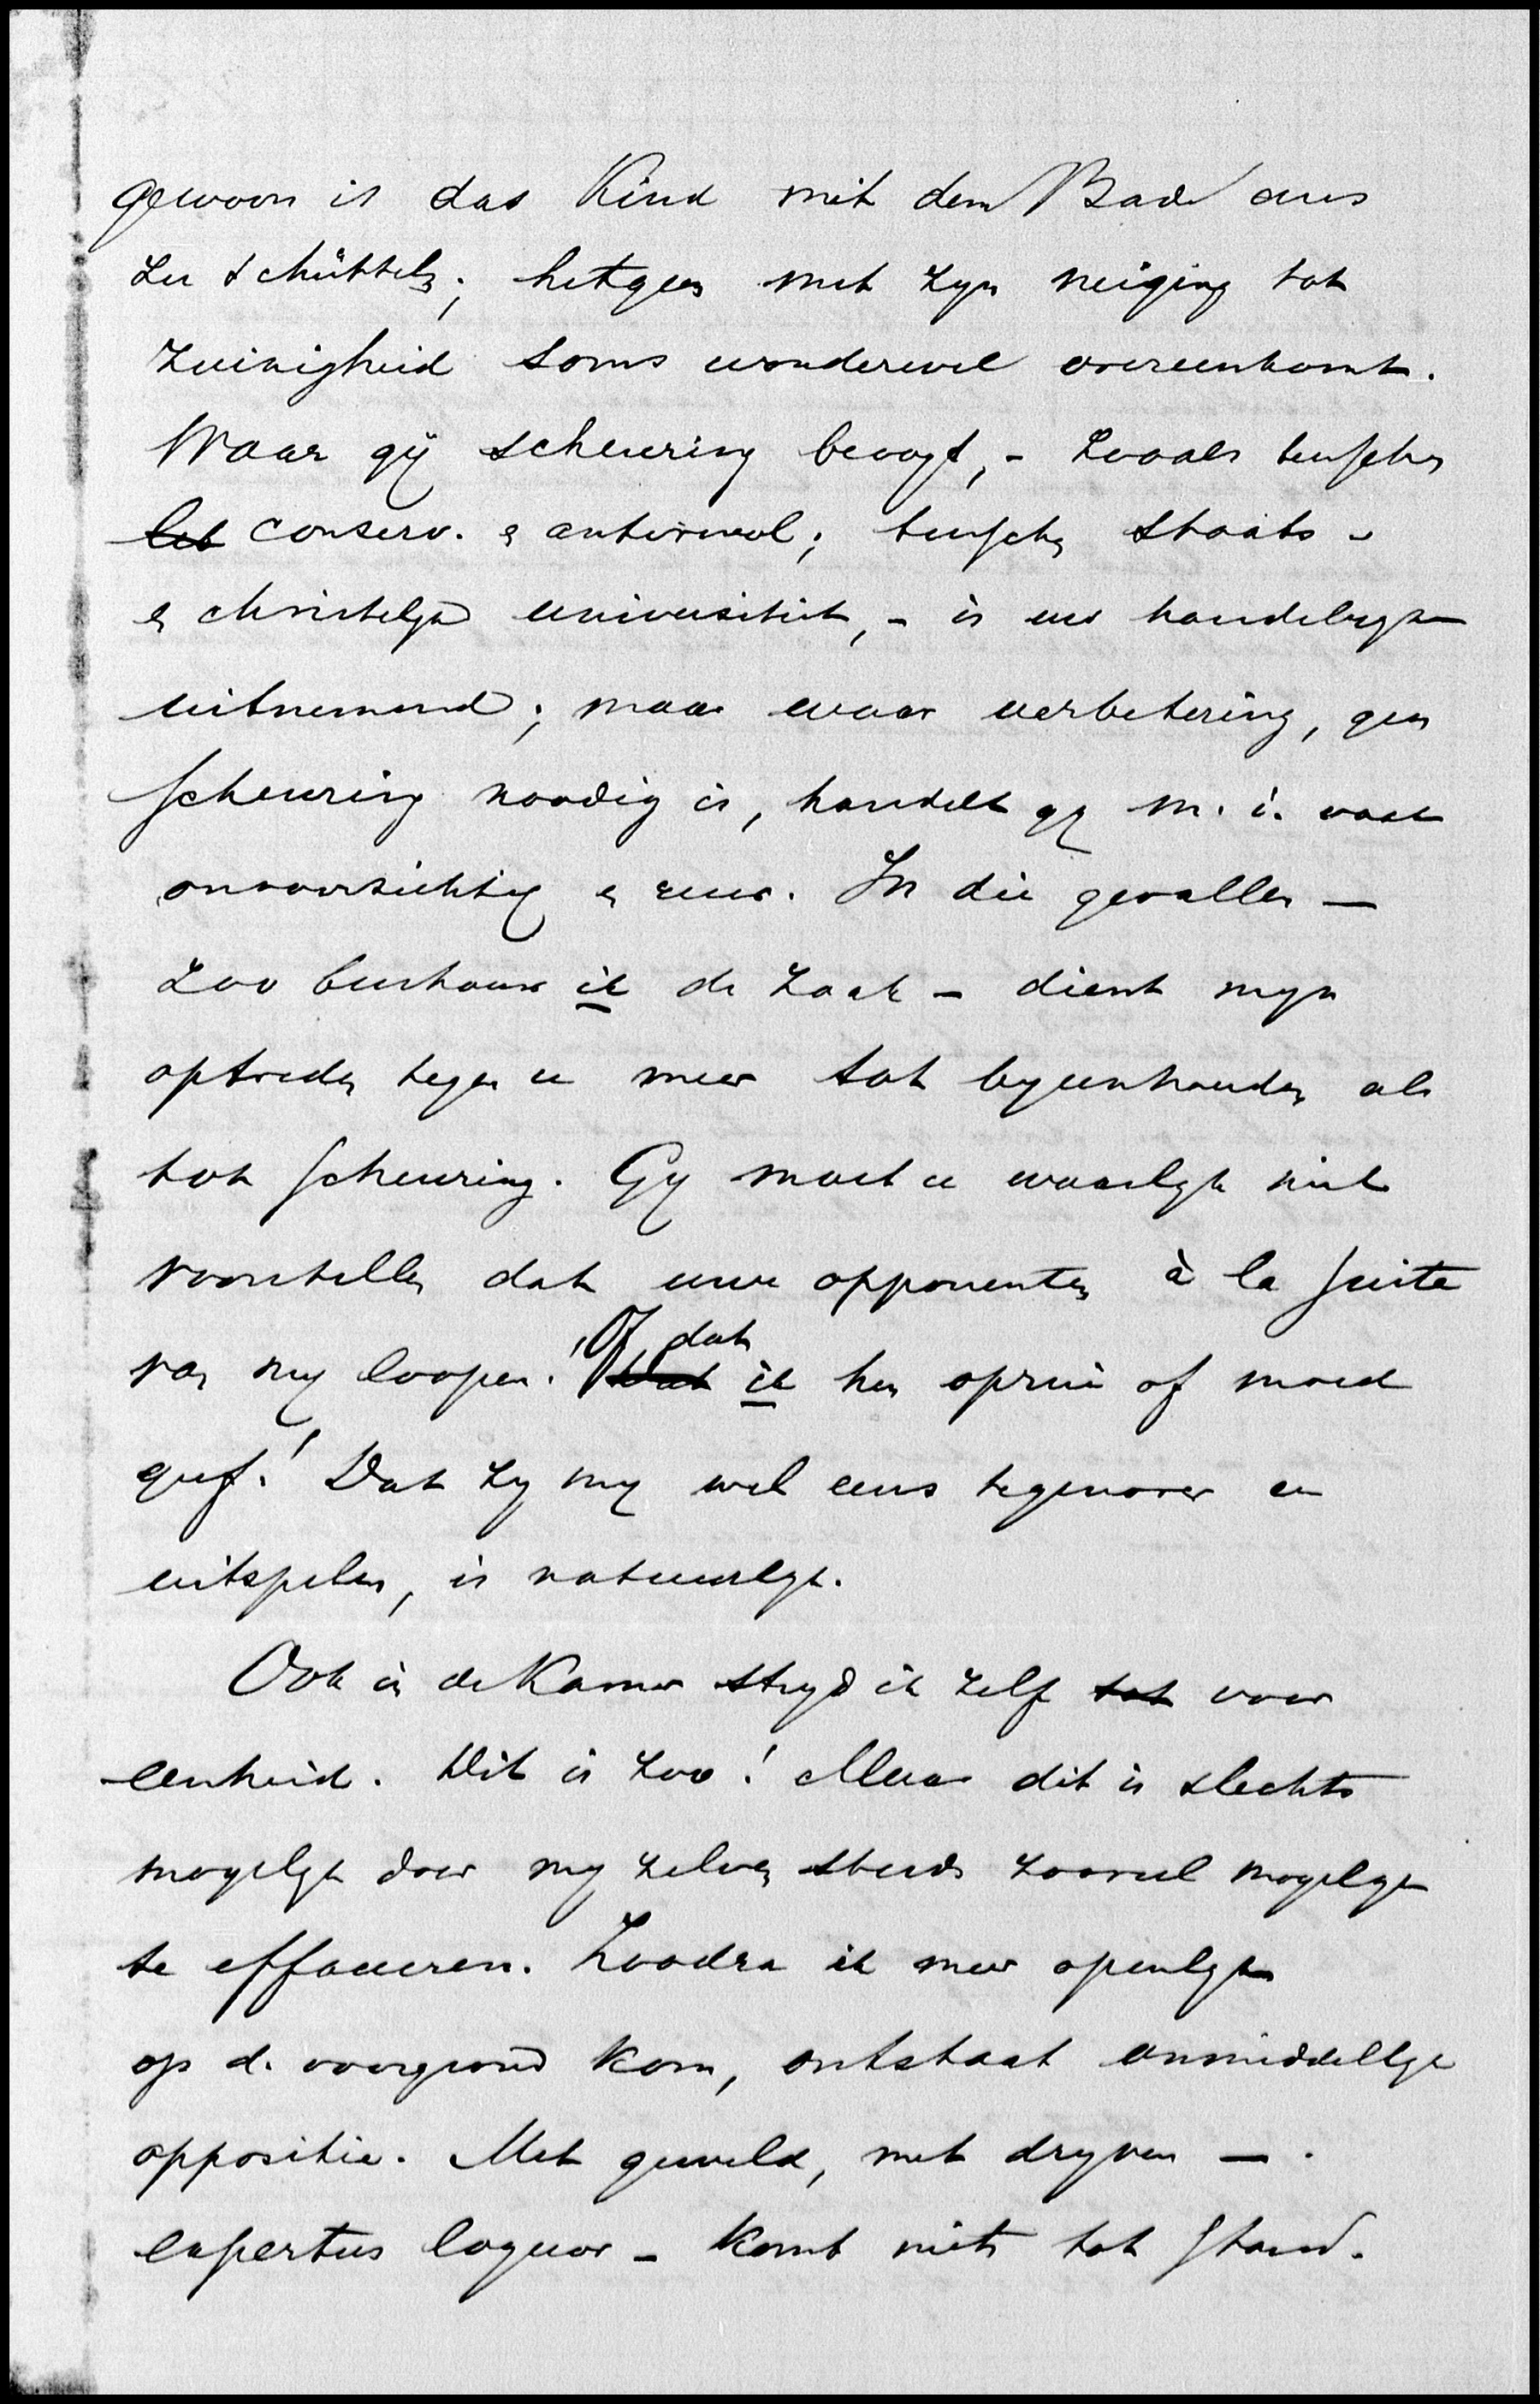 gewoon is das Kind mit dem Bade aus
zu schüttelen; hetgeen met zyn neiging tot
zuinigheid soms wonderwel overeenkomt.
Waar gij scheuring beoogt, - zooals tusschen
het conserv. en antirevol; tusschen staats -
en christelyke universiteit, - is uw handelwyze
uitnemend; maar waar verbetering, geen
scheuring noodig is, handelt gy m. i. wat
onvoorzichtig en ruw. In die gevallen —
zoo beschouw ik de zaak - dient myn
optreden tegen u meer tot byeenhouden als
tot scheuring. Gy moet u waarlyk niet
voorstellen dat uwe opponenten à la suite
van my loopen. Of dat ik hen oprui of moed
geef! Dat zy my wel eens tegenover u
uitspelen, is natuurlyk.
Ook in de Kamer stryd ik zelf tot voor
eenheid. Dit is zoo! Maar dit is slechts
mogelyk door my zelven steeds zooveel mogelyk
te effaceeren. Zoodra ik meer openlyk
op d. voorgrond kom, ontstaat onmiddellyk
oppositie. Met geweld, met dryven —
expertus loquor - komt niets tot stand.